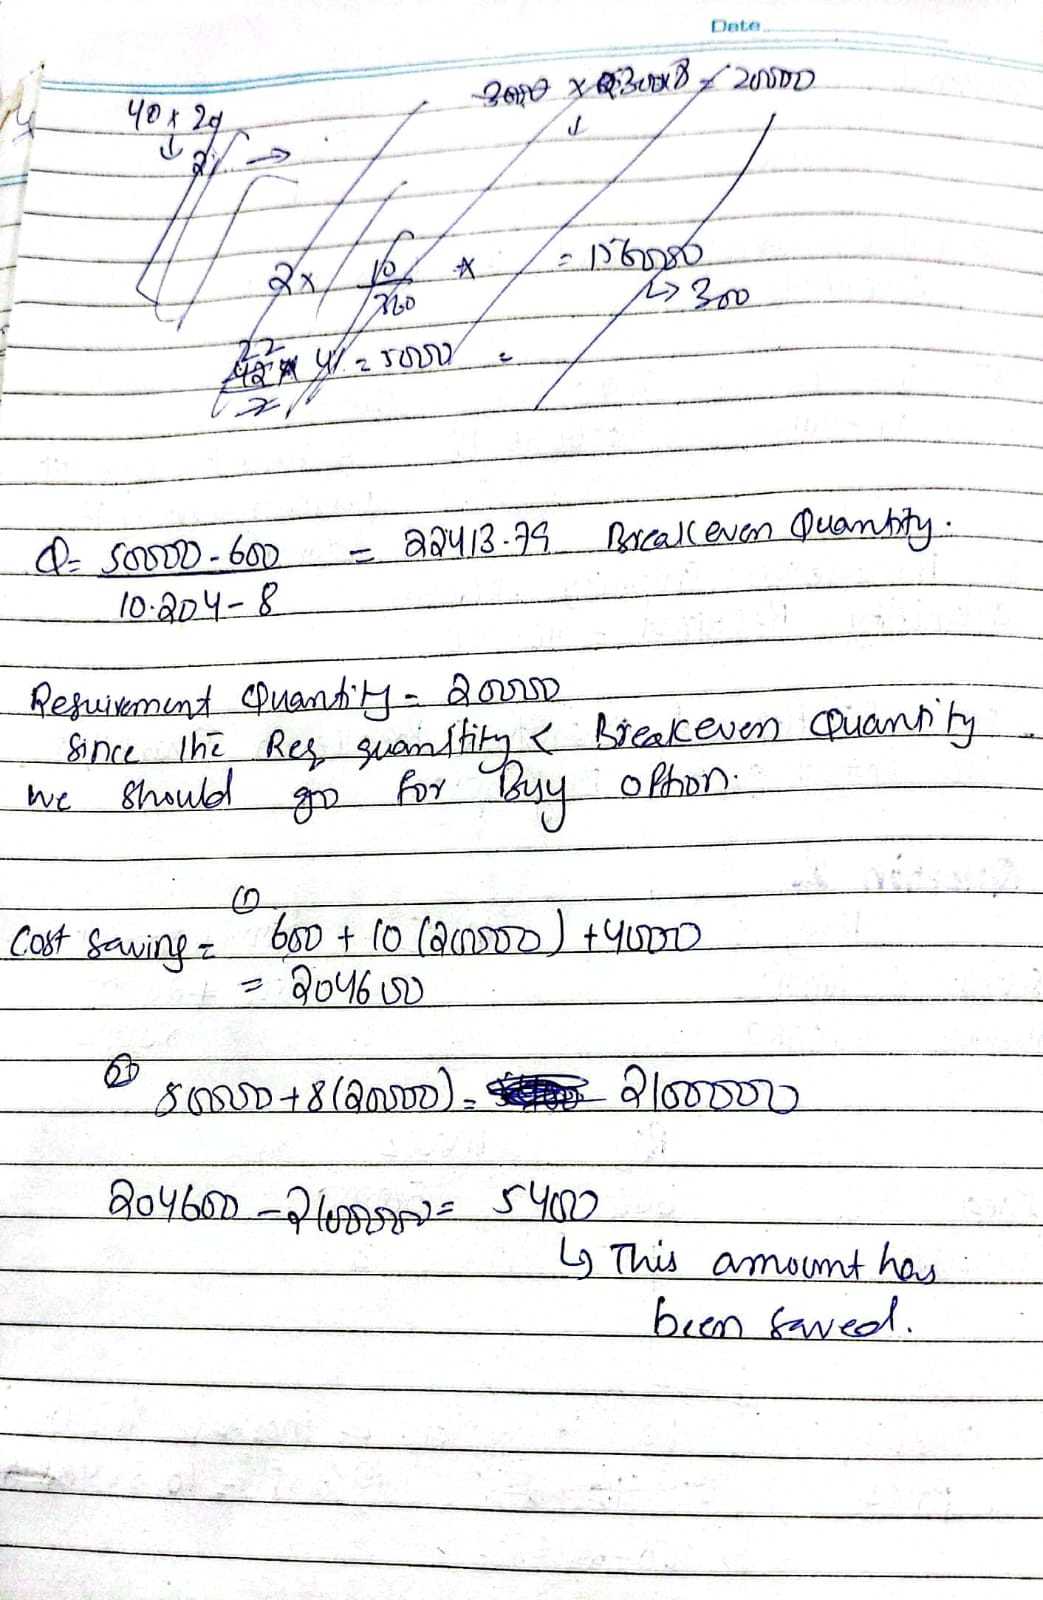 Date
40 x 2y
2%
= 156000
2 x 10 x
360
300
22
4% = 5000 =
Q = 50000 - 600 = 22413.79 Breakeven Quantity.
10.204 - 8
Requirement Quantity = 20000
Since the Req quantity < Breakeven Quantity
we should go for Buy option.
①
Cost Saving = 600 + 10 (20000) + 4000
= 204600
②
50000 + 8 (20000) = 2100000
204600 - 2100000 = 5400
↳ This amount has
been saved.